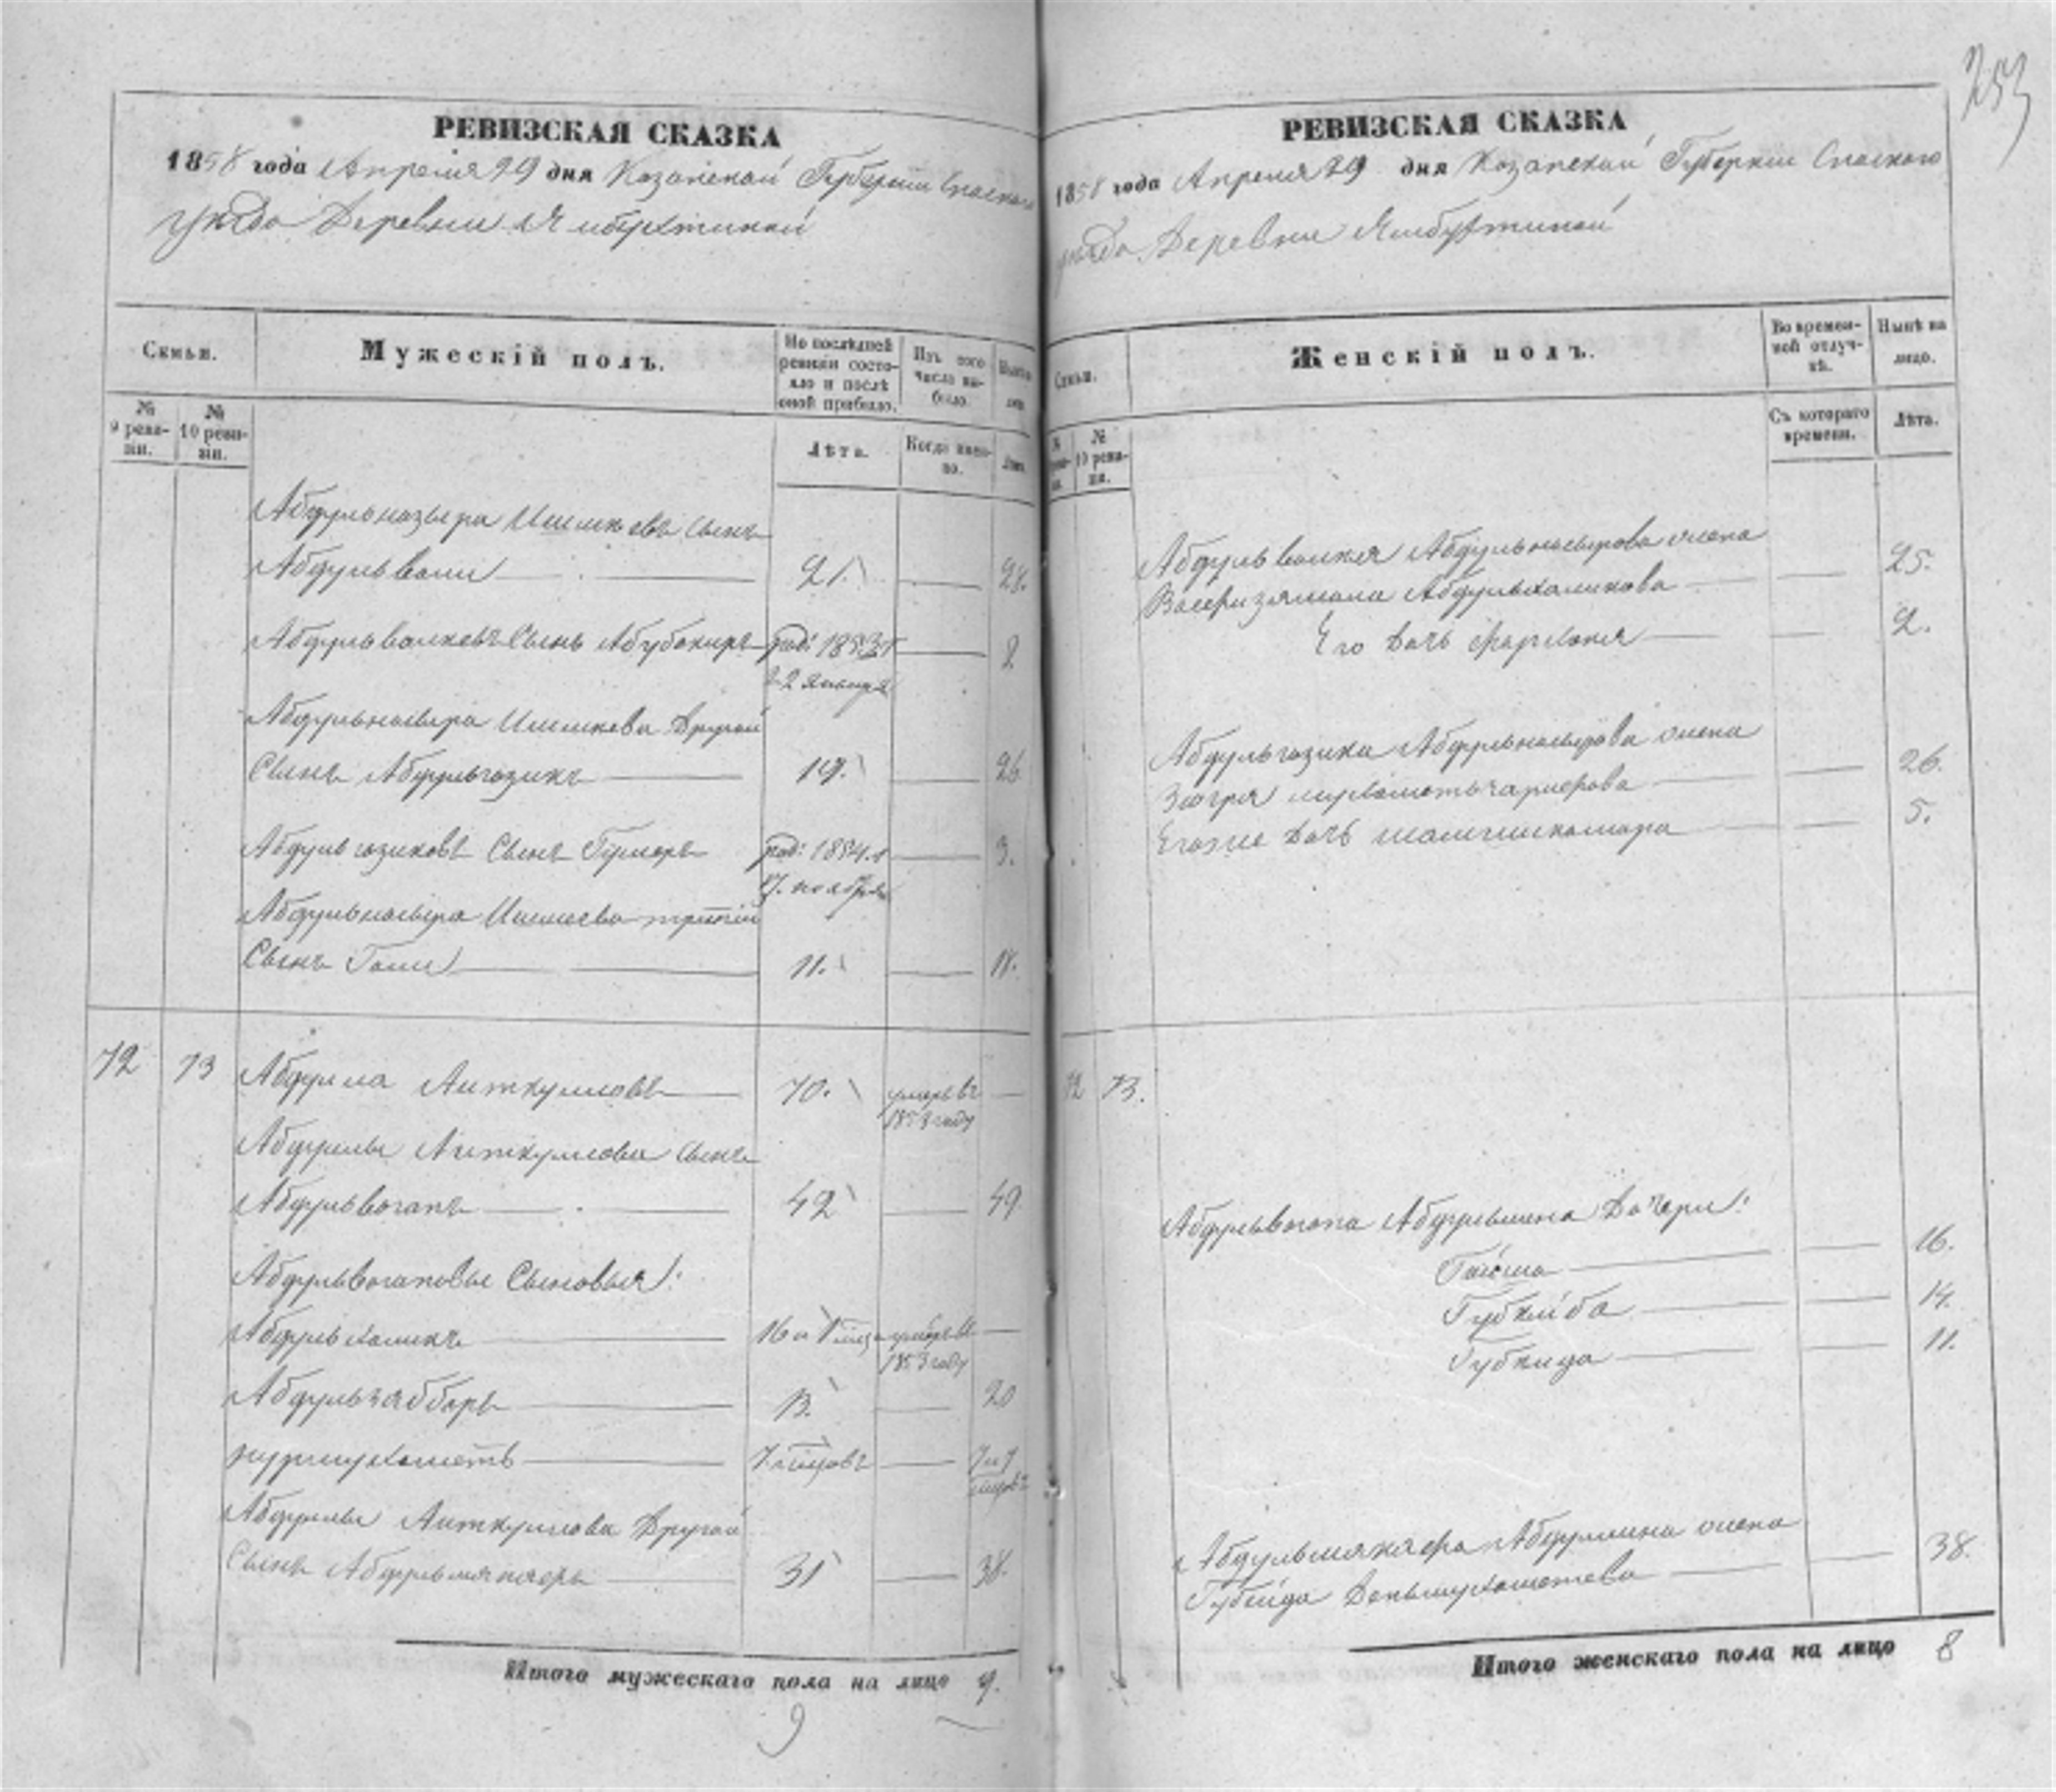 253
РЕВИЗСКАЯ СКАЗКА
1858 года Апреля 29 дня Казанской Губернии Спаского
уѣзда Деревни Ямбухтиной
Семьи.
Мужескій полъ.
По послѣдней ревизіи состояло и послѣ оной прибыло.
Изъ того числа выбыло.
Нынѣ на лицо
№ 9 ревизіи.
№ 10 ревизіи.
Лѣта.
Когда именно.
Лѣта.
Абдульназыра Ишмѣевъ сынъ
Абдульвали 21. 28.
Абдульвалиевъ Сынъ Абубакиръ род: 1853 г 2
22 января
Абдульнасыра Ишмѣева Другой
Сынъ Абдульгазизъ 19. 26
Абдульгазизовъ Сынъ Гумеръ род: 1854. г 3.
17. ноября
Абдульнасыра Ишмѣева третій
Сынъ Гали 11. 18.
72 73 Абдулла Аиткуловъ 70. умеръ въ
1853 году
Абдуллы Аиткулова сынъ
Абдульвагапъ 42 49
Абдульвагаповы Сыновья:
Абдульхаликъ 16 и умеръ въ
1853 году
Абдульзябборъ 13. 20
Нурмухаметъ 7 мѣсцовъ 7 и 7
мѣсцовъ
Абдуллы Аиткулова Другой
Сынъ Абдульмянафъ 31 38.
Итого мужескаго пола на лицо 9.
9
РЕВИЗСКАЯ СКАЗКА
1858 года Апреля 29 дня Казанской Губернии Спаского
уѣзда Деревни Ямбухтиной
Семьи.
Женскій полъ.
Во временной отлучкѣ.
Нынѣ на лицо.
№ 10 ревизіи.
Съ котораго времени.
Лѣта.
Абдульвалия Абдульнасырова жена
Абдульхаликова 25.
Его Дочь 2.
Абдульгазиза Абдульнасырова жена
Зюгря 26.
Егоже Дочь 5.
72 73.
Абдульвагапа Абдульлина Дочери:
16.
14.
11.
Абдульмянафа Абдуллина жена
Губейда Деньмухаметева 38.
Итого женскаго пола на лицо 8